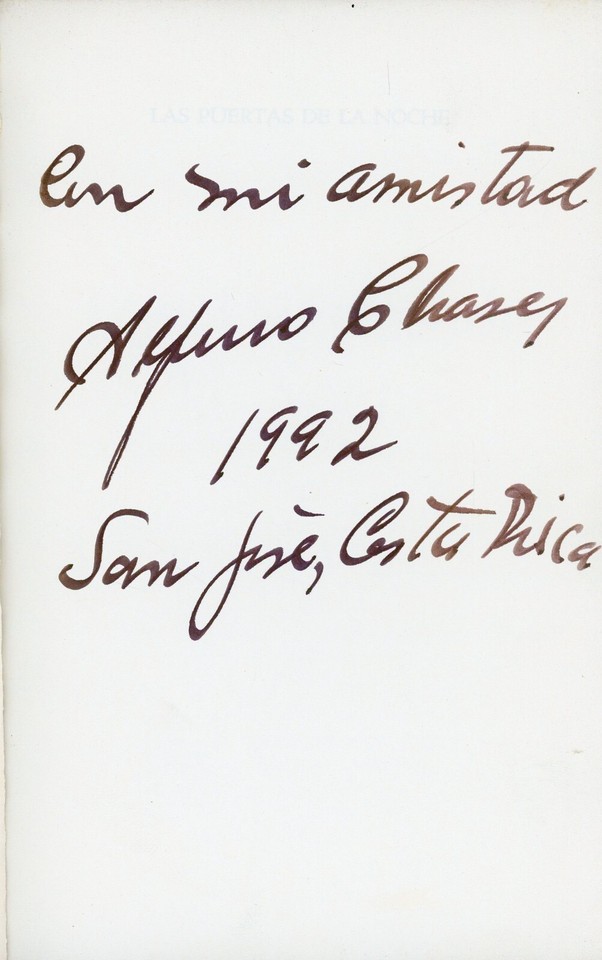 LAS PUERTAS DE LA NOCHE
Con mi amistad
Alfonso Chase
1992
San José, Costa Rica